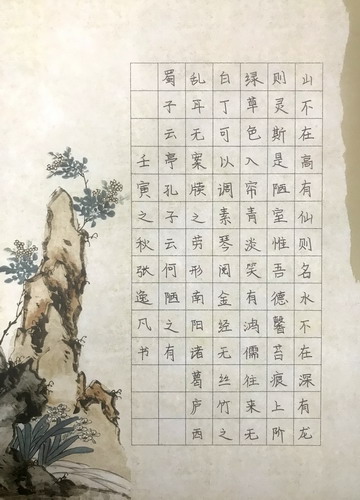 山不在高有仙则名水不在深有龙
则灵斯是陋室惟吾德馨苔痕上阶
绿草色入帘青淡笑有鸿儒往来无
白丁可以调素琴阅金经无丝竹之
乱耳无案牍之劳形南阳诸葛庐西
蜀子云亭孔子云何陋之有
壬寅之秋张逸凡书